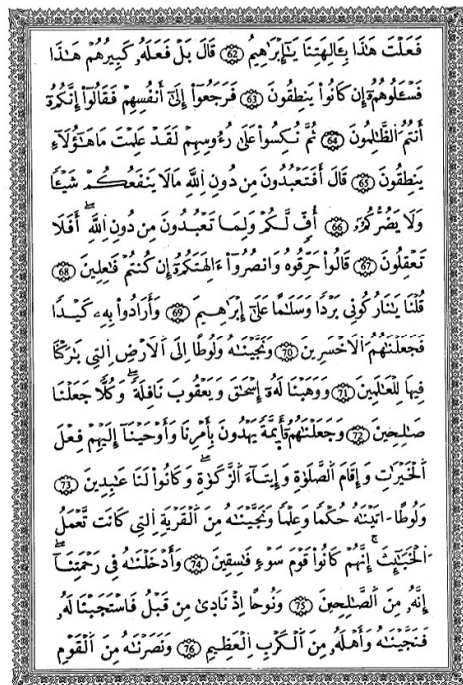 فَعَلْتَ هَٰذَا بِـَٔالِهَتِنَا يَٰٓإِبْرَٰهِيمُ ٦٢ قَالَ بَلْ فَعَلَهُۥ كَبِيرُهُمْ هَٰذَا
فَسْـَٔلُوهُمُۥٓ إِن كَانُوا۟ يَنطِقُونَ ٦٣ فَرَجَعُوٓا۟ إِلَىٰٓ أَنفُسِهِمْ فَقَالُوٓا۟ إِنَّكُمُۥٓ
أَنتُمُ ٱلظَّٰلِمُونَ ٦٤ ثُمَّ نُكِسُوا۟ عَلَىٰ رُءُوسِهِمْ لَقَدْ عَلِمْتَ مَا هَٰٓؤُلَآءِ
يَنطِقُونَ ٦٥ قَالَ أَفَتَعْبُدُونَ مِن دُونِ ٱللَّهِ مَا لَا يَنفَعُكُمْ شَيْـًٔا
وَلَا يَضُرُّكُمُۥٓ ٦٦ أُفٍّ لَّكُمْ وَلِمَا تَعْبُدُونَ مِن دُونِ ٱللَّهِ أَفَلَا
تَعْقِلُونَ ٦٧ قَالُوا۟ حَرِّقُوهُ وَٱنصُرُوٓا۟ ءَالِهَتَكُمُۥٓ إِن كُنتُمْ فَٰعِلِينَ ٦٨
قُلْنَا يَٰنَارُ كُونِى بَرْدًا وَسَلَٰمًا عَلَىٰٓ إِبْرَٰهِيمَ ٦٩ وَأَرَادُوا۟ بِهِۦ كَيْدًا
فَجَعَلْنَٰهُمُ ٱلْأَخْسَرِينَ ٧٠ وَنَجَّيْنَٰهُ وَلُوطًا إِلَى ٱلْأَرْضِ ٱلَّتِى بَٰرَكْنَا
فِيهَا لِلْعَٰلَمِينَ ٧١ وَوَهَبْنَا لَهُۥٓ إِسْحَٰقَ وَيَعْقُوبَ نَافِلَةً وَكُلًّا جَعَلْنَا
صَٰلِحِينَ ٧٢ وَجَعَلْنَٰهُمُۥٓ أَئِمَّةً يَهْدُونَ بِأَمْرِنَا وَأَوْحَيْنَآ إِلَيْهِمْ فِعْلَ
ٱلْخَيْرَٰتِ وَإِقَامَ ٱلصَّلَوٰةِ وَإِيتَآءَ ٱلزَّكَوٰةِ وَكَانُوا۟ لَنَا عَٰبِدِينَ ٧٣
وَلُوطًا ءَاتَيْنَٰهُ حُكْمًا وَعِلْمًا وَنَجَّيْنَٰهُ مِنَ ٱلْقَرْيَةِ ٱلَّتِى كَانَت تَّعْمَلُ
ٱلْخَبَٰٓئِثَ إِنَّهُمْ كَانُوا۟ قَوْمَ سَوْءٍ فَٰسِقِينَ ٧٤ وَأَدْخَلْنَٰهُ فِى رَحْمَتِنَآ
إِنَّهُۥ مِنَ ٱلصَّٰلِحِينَ ٧٥ وَنُوحًا إِذْ نَادَىٰ مِن قَبْلُ فَٱسْتَجَبْنَا لَهُۥ
فَنَجَّيْنَٰهُ وَأَهْلَهُۥ مِنَ ٱلْكَرْبِ ٱلْعَظِيمِ ٧٦ وَنَصَرْنَٰهُ مِنَ ٱلْقَوْمِ